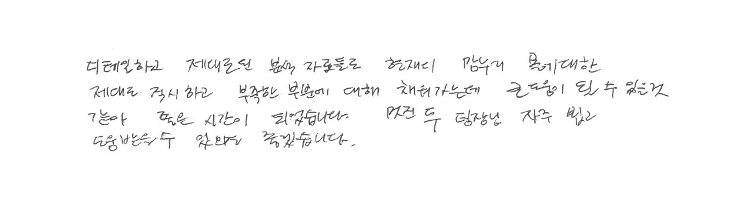 디테일하고 제대로된 분석 자료들로 현재의 맘누리 몰에대한
제대로 직시하고 부족한 부분에 대해 채워가는데 큰도움이 될 수 있을것
같아 좋은 시간이 되었습니다. 멋진 두 팀장님 자주 뵙고
도움받을수 있으면 좋겠습니다.